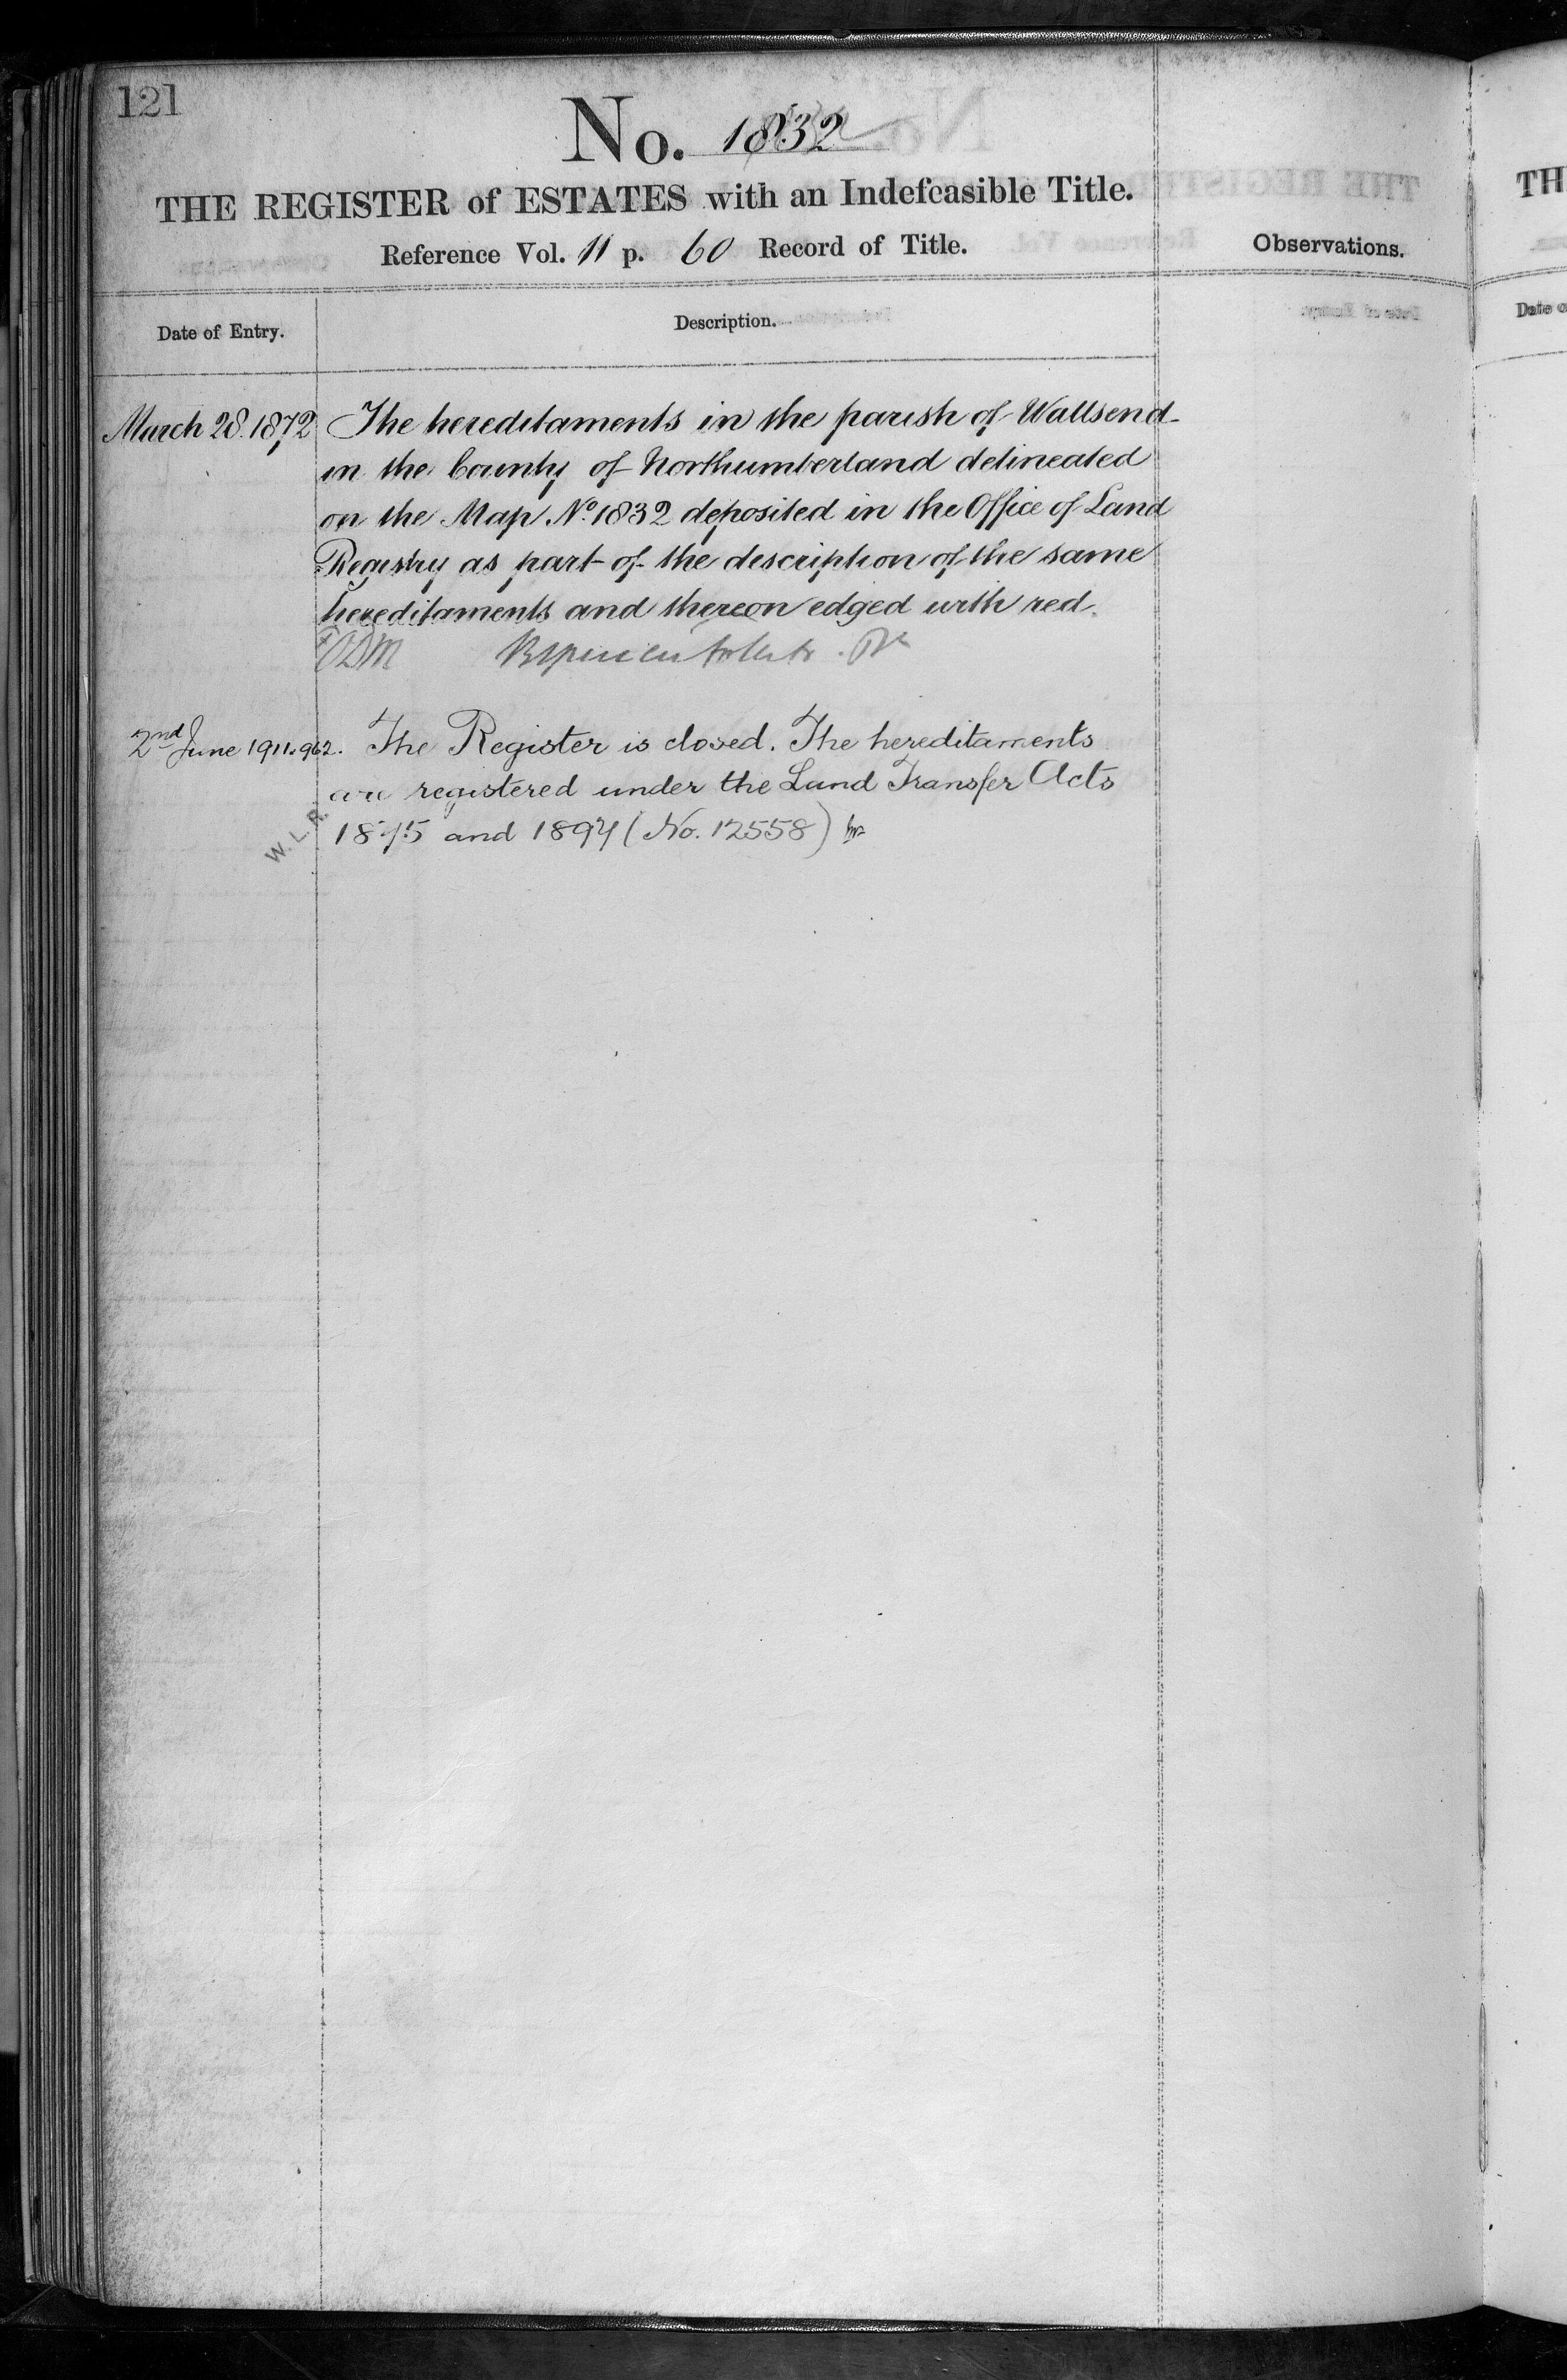 121
No. 1832
THE REGISTER of ESTATES with an Indefeasible Title.
Reference Vol. 11 p. 60 Record of Title.
Observations.
Date of Entry.
Description.
March 28. 1872
The hereditaments in the parish of Wallsend
in the County of Northumberland delineated
on the Map No. 1832 deposited in the Office of Land
Registry as part of the description of the same
hereditaments and thereon edged with red.
2nd June 1911. 962.
The Register is closed. The hereditaments
are registered under the Land Transfer Acts
1875 and 1897 (No. 12558)
W. L. R.
TH
Date o